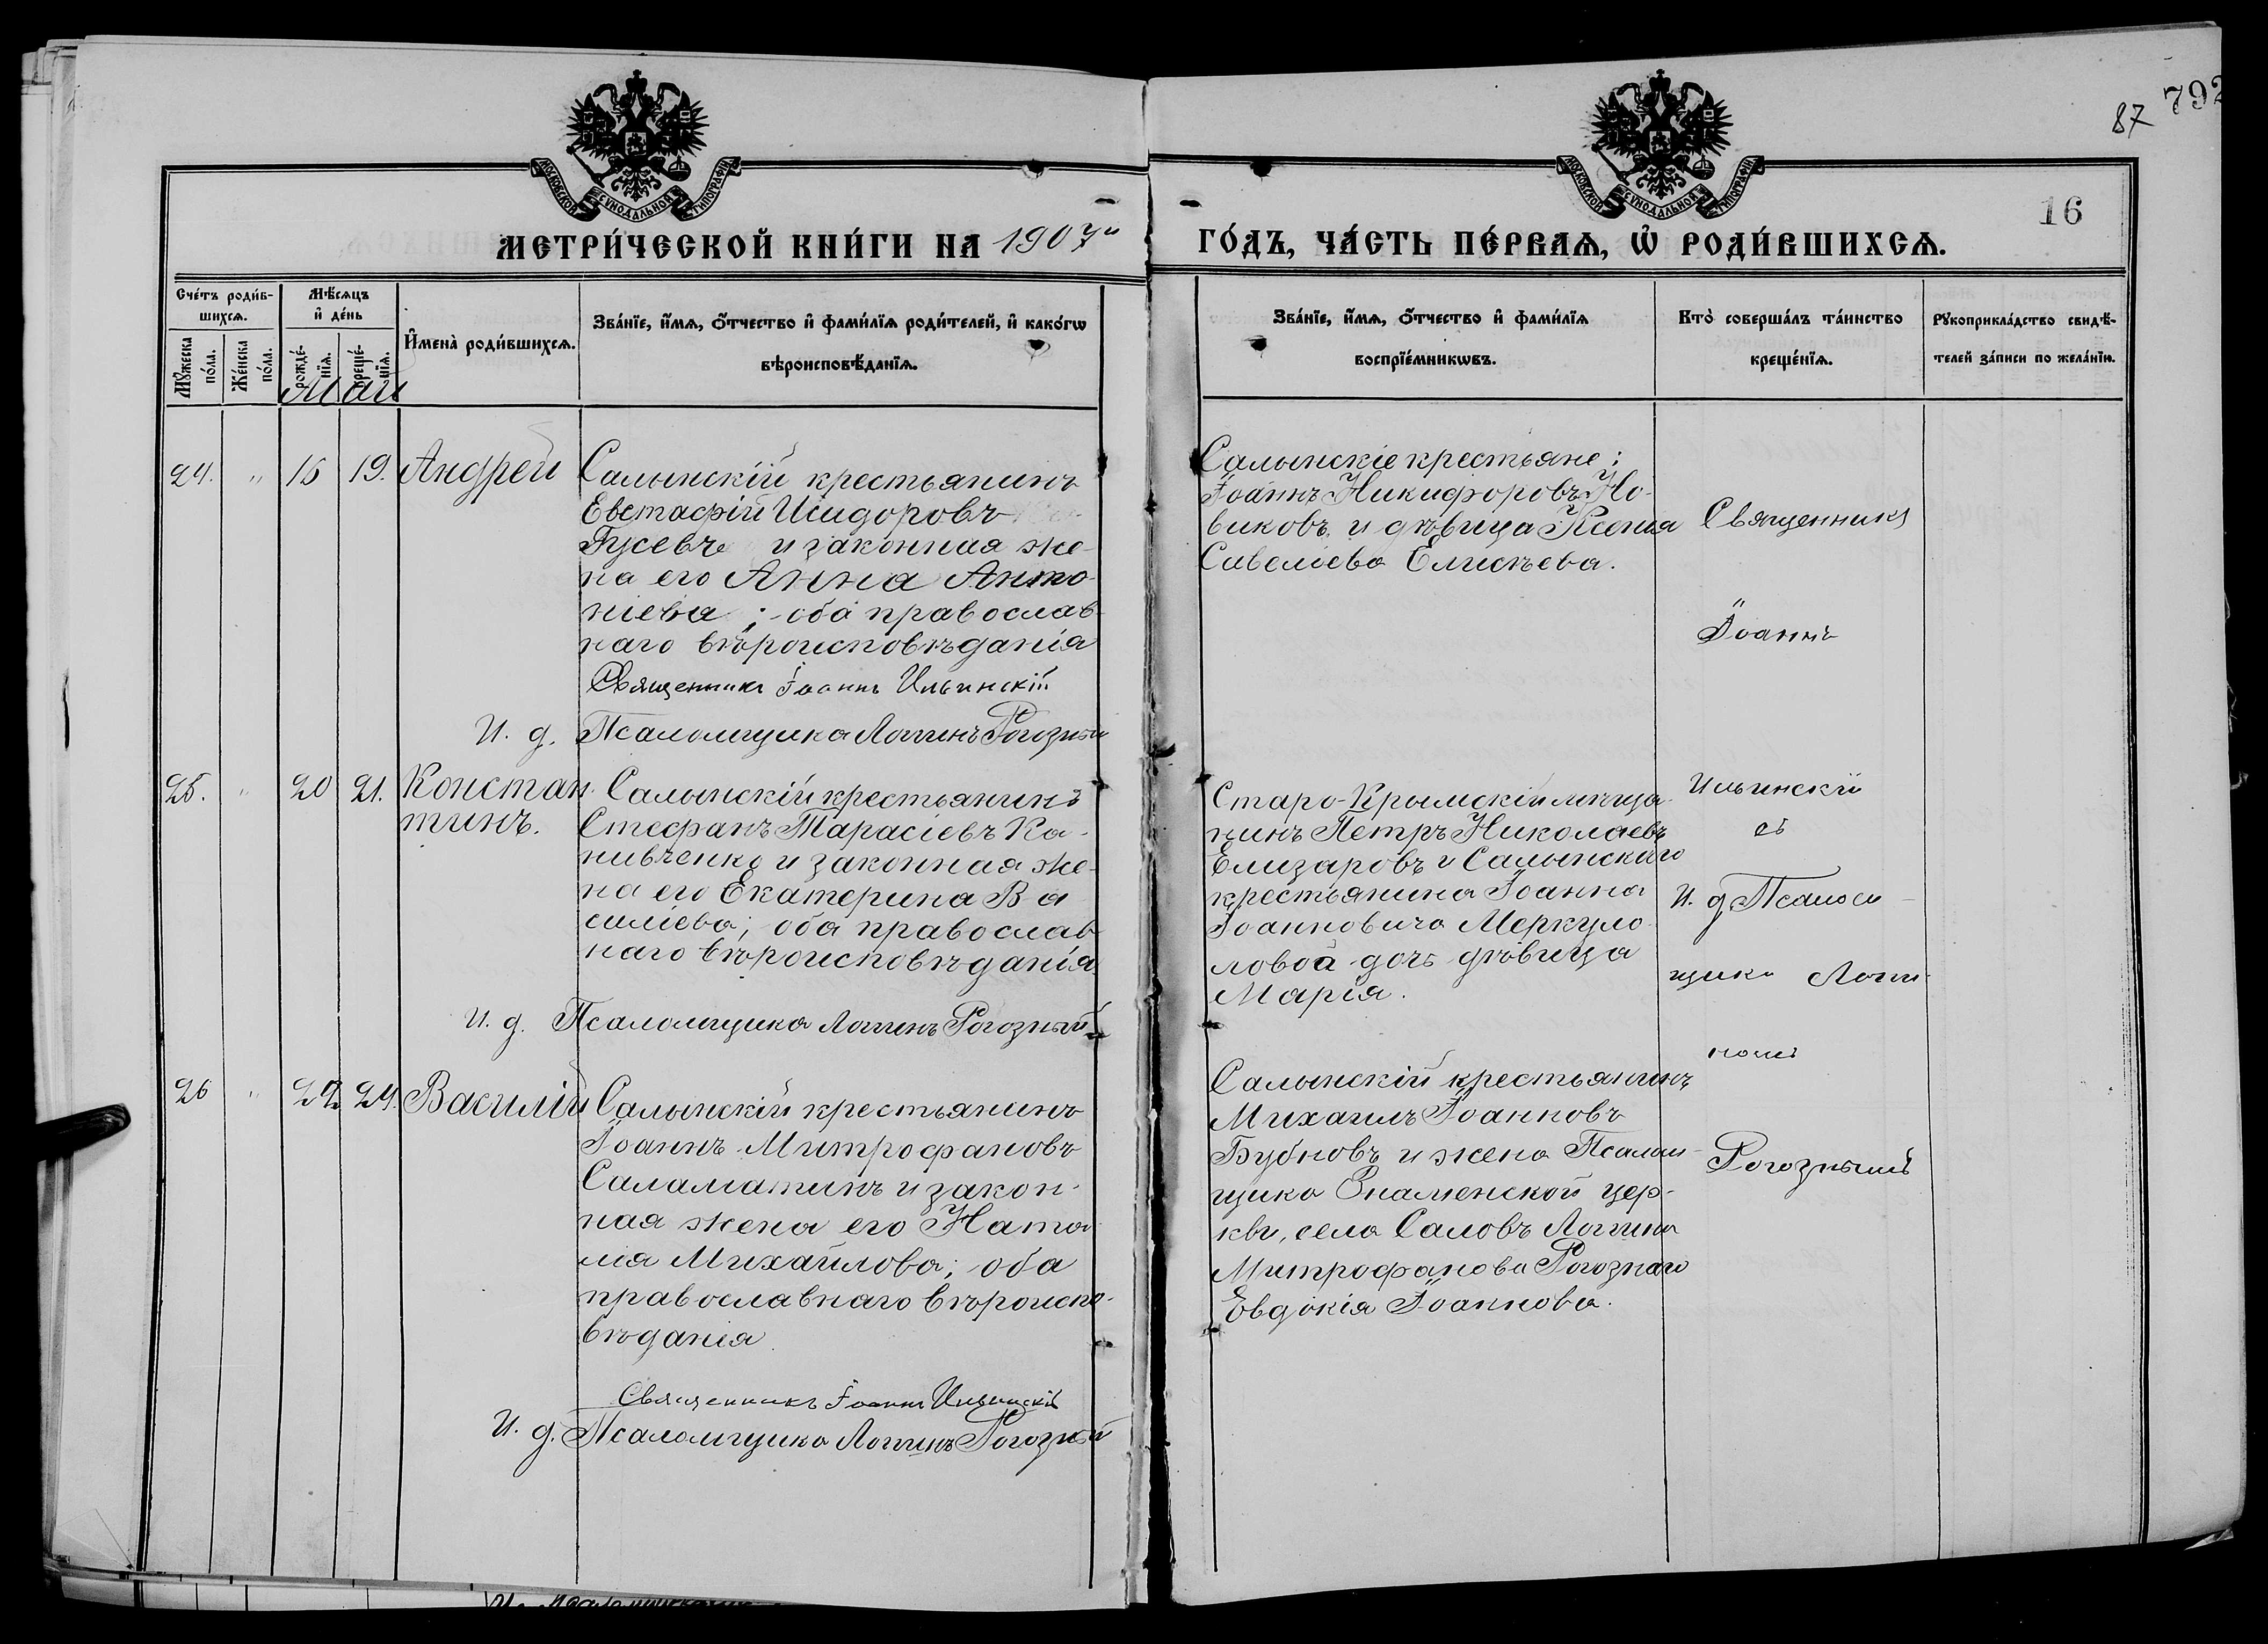 87 792
16
МОСКОВСКОЙ СѴНОДАЛЬНОЙ ТИПОГРАФІИ
МОСКОВСКОЙ СѴНОДАЛЬНОЙ ТИПОГРАФІИ
МЕТРИ́ЧЕСКОЙ КНИ́ГИ НА 1907й
ГО́ДЪ, ЧА́СТЬ ПЕ́РВАѦ, Ѡ҆ РОДИ́ВШИХСѦ.
Сче́тъ роди́в-
шихсѧ.
Мꙋ́жеска
по́ла.
Же́нска
по́ла.
Мѣ́сѧцъ
и҆ де́нь
рожде́-
нїѧ.
креще́-
нїѧ.
Май
И҆мена̀ роди́вшихсѧ.
Зва́нїе, и҆́мѧ, ѻ҆́тчество и҆ фами́лїѧ роди́телей, и҆ како́гѡ
вѣроисповѣ́данїѧ.
Зва́нїе, и҆́мѧ, ѻ҆́тчество и҆ фами́лїѧ
воспрїе́мникѡвъ.
Кто̀ соверша́лъ та́инство
креще́нїѧ.
Рꙋкоприкла́дство свидѣ́-
телей за́писи по жела́нїю.
24. " 15 19. Андрей
Салынскій крестьянинъ
Евстафій Исидоровъ
Гусевъ и законная же-
на его Анна Анто-
ніева; оба православ-
наго вѣроисповѣданія
Священникъ Іоаннъ Ильинскій
И. д. Псаломщика Логгинъ Рогозный
Салынскіе крестьяне:
Іоаннъ Никифоровъ Но-
виковъ и дѣвица Ксенія
Савеліева Елисѣева.
Священникъ
Іоаннъ
25. " 20 21. Констан-
тинъ.
Салынскій крестьянинъ
Стефанъ Тарасіевъ Ка-
нивченко и законная же-
на его Екатерина Ва
силіева; оба православ
наго вѣроисповѣданія
И. д. Псаломщика Логгинъ Рогозный
Старо-Крымскій мѣща-
нинъ Петръ Николаевъ
Елизаровъ и Салынскаго
крестьянина Іоанна
Іоанновича Меркуло
ловой дочь дѣвица
Марія.
Ильинскій
съ
И. д. Псалом-
щика Логги-
номъ
26 " 22 24. Василій
Салынскій крестьянинъ
Іоаннъ Митрофановъ
Саламатинъ и закон-
ная жена его Ната
лія Михайлова; оба
православнаго вѣроиспо-
вѣданія
Священникъ Іоаннъ Ильинскій
И. д. Псаломщика Логгинъ Рогозный
Салынскій крестьянинъ
Михаилъ Іоанновъ
Бубновъ и жена Псалом-
щика Знаменской цер-
кви, села Саловъ Логгина
Митрофанова Рогознаго
Евдокія Іоаннова.
Рогознымъ